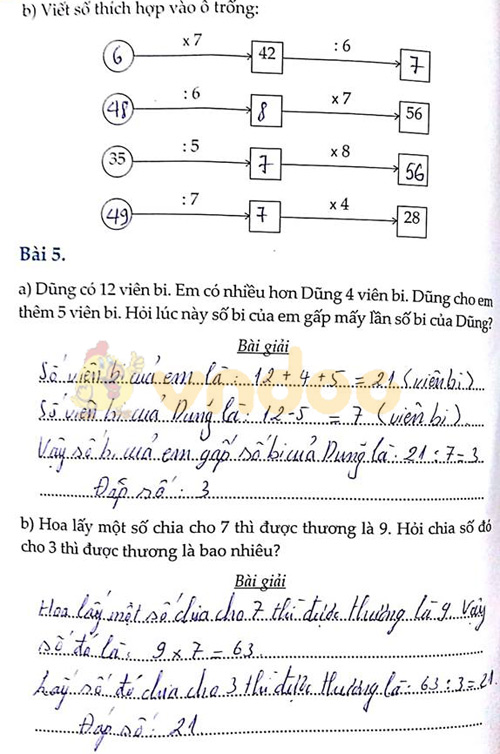 b) Viết số thích hợp vào ô trống:
6 x 7 42 : 6 7
48 : 6 8 x 7 56
35 : 5 7 x 8 56
49 : 7 7 x 4 28
Bài 5.
a) Dũng có 12 viên bi. Em có nhiều hơn Dũng 4 viên bi. Dũng cho em
thêm 5 viên bi. Hỏi lúc này số bi của em gấp mấy lần số bi của Dũng?
Bài giải
Số viên bi của em là : 12 + 4 + 5 = 21 (viên bi)
Số viên bi của Dung là : 12 - 5 = 7 (viên bi)
Vậy số bi của em gấp số bi của Dung là : 21 : 7 = 3
Đáp số : 3
b) Hoa lấy một số chia cho 7 thì được thương là 9. Hỏi chia số đó
cho 3 thì được thương là bao nhiêu?
Bài giải
Hoa lấy một số chia cho 7 thì được thương là 9. Vậy
số đó là : 9 x 7 = 63
Lấy số đó chia cho 3 thì được thương là : 63 : 3 = 21
Đáp số : 21
vndoo